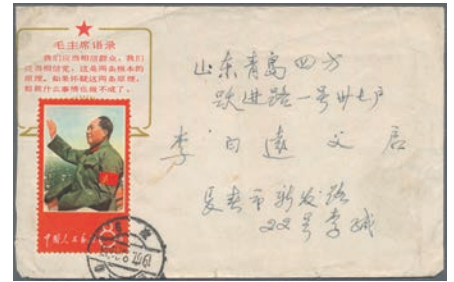 毛主席语录
我们应当相信群众，我们
应当相信党，这是两条根本的
原理。如果怀疑这两条原理，
那就什么事情也做不成了。
中国人民邮
山东青岛四方
跃进路一号
李 远 父 启
长春市新发路
22号李